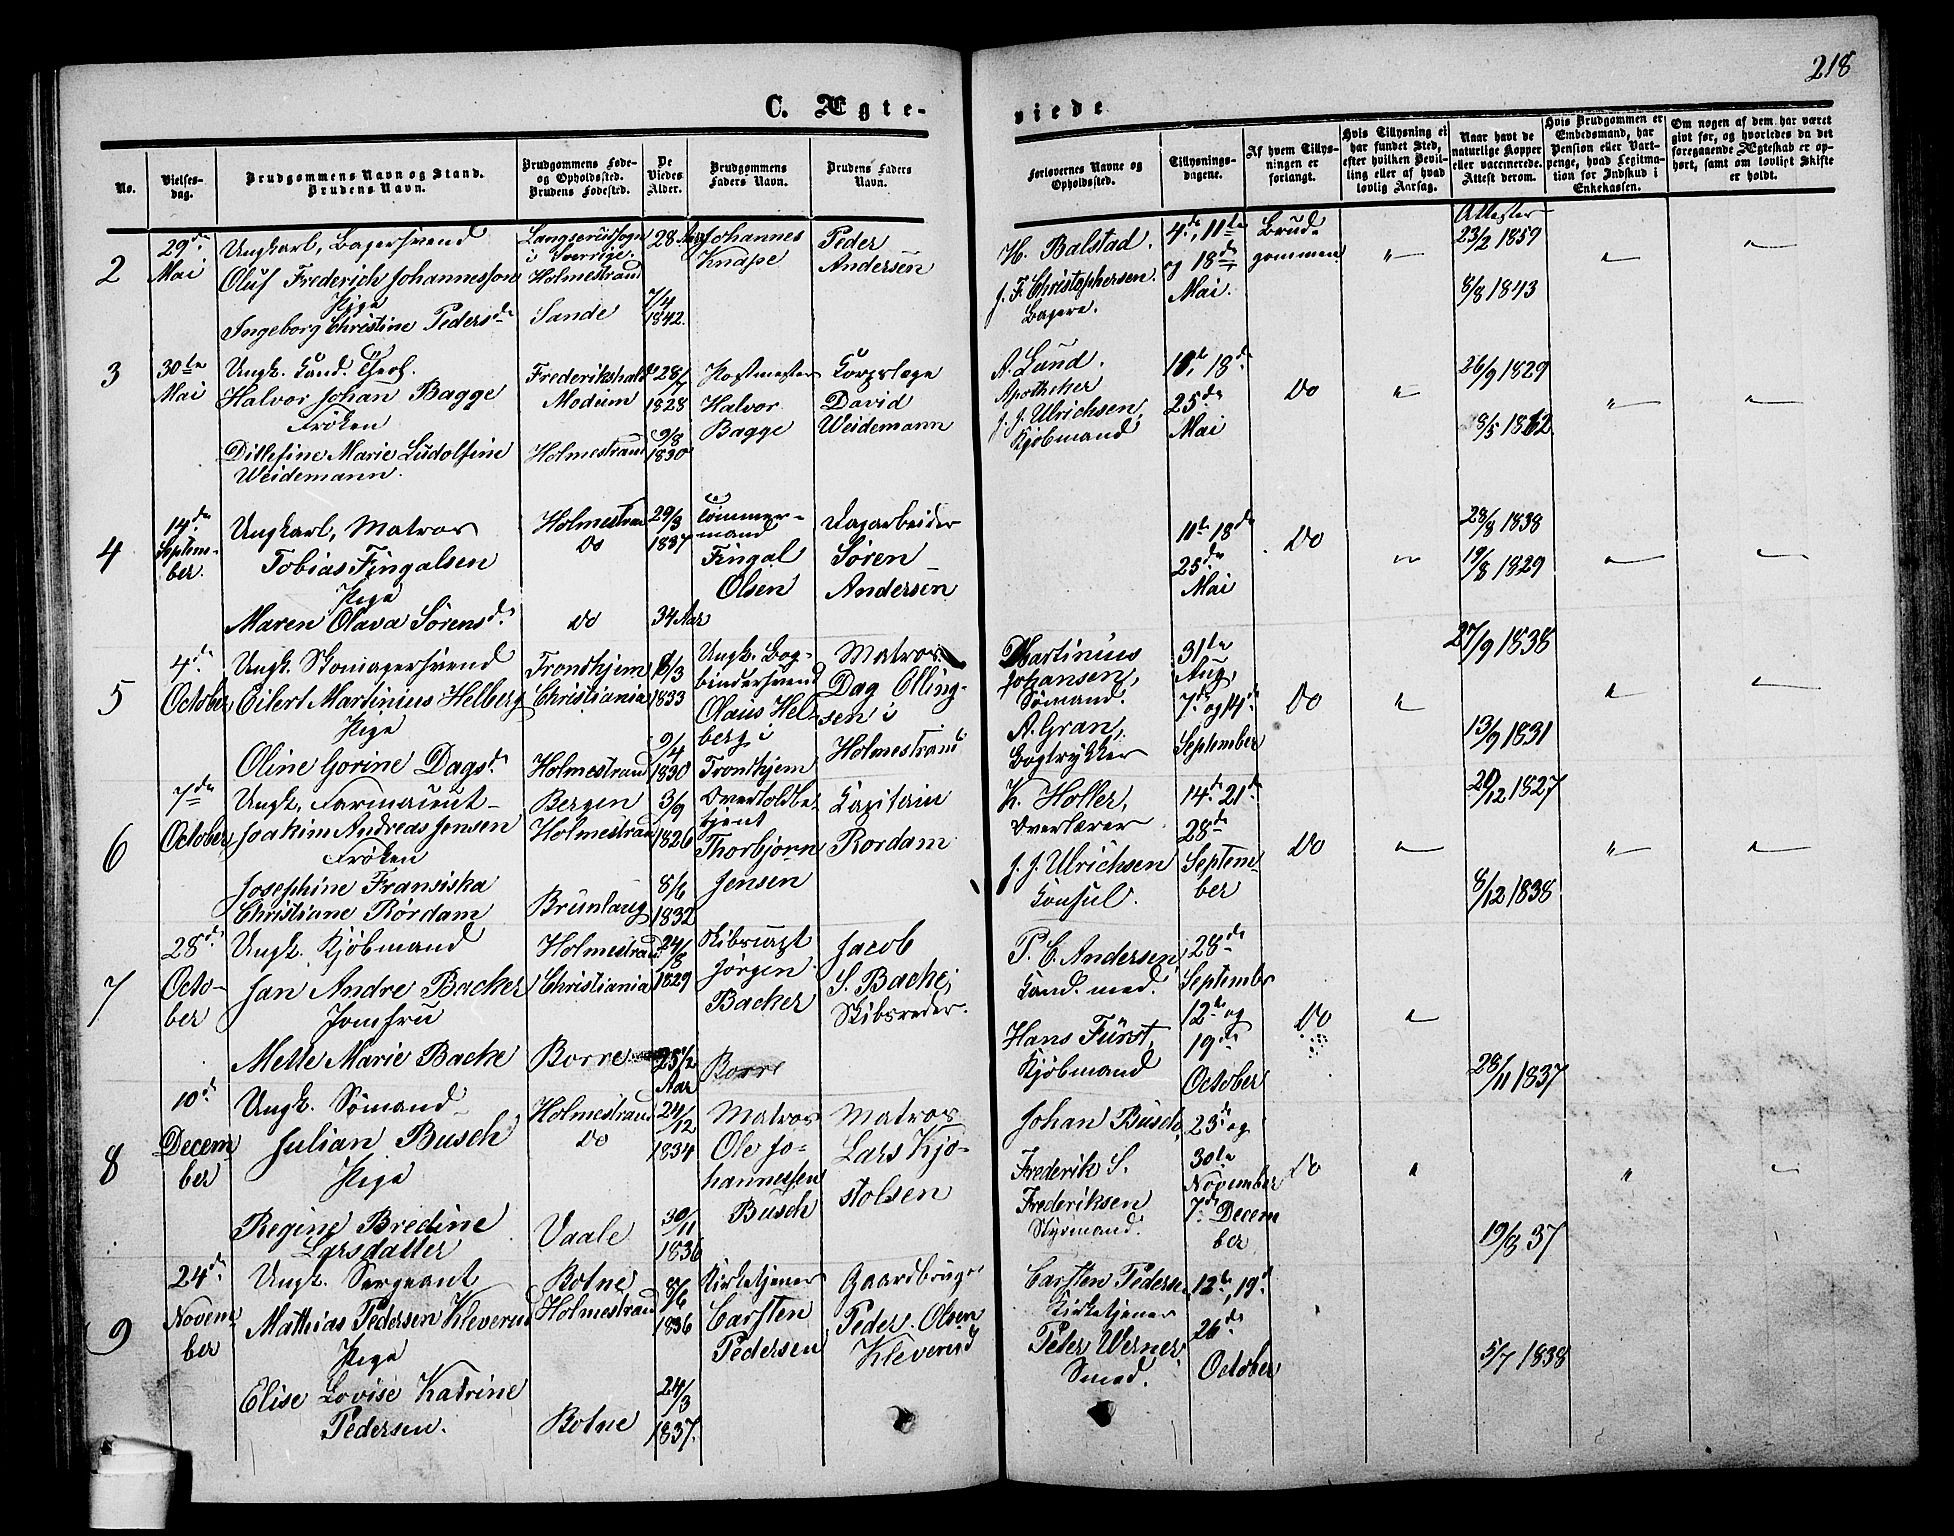 218
C. Ægte-
viede
No.
Vielses-
dag.
Brudgommens Navn og Stand.
Brudens Navn.
Brudgommens Føde-
og Opholdssted.
Brudens Fødested.
De
Viedes
Alder.
Brudgommens
Faders Navn.
Brudens Faders
Navn.
Forlovernes Navne og
Opholdssted.
Tillysnings-
dagene.
Af hvem Tillys-
ningen er
forlangt.
Hvis Tillysning ei
har fundet Sted,
efter hvilken Bevil-
ling eller af hvad
lovlig Aarsag.
Naar havt de
naturlige Kopper
eller vaccinerede.
Attest derom.
Hvis Brudgommen er
Embedsmand, har
Pension eller Vart-
penge, hvad Legitima-
tion for Indskud i
Enkekassen.
Om nogen af dem har været
givt før, og hvorledes da det
foregaaende Ægteskab er op-
hørt, samt om lovligt Skifte
er holdt.
2
29de
Mai
Ungkarl, Bagersvend
Oluf Frederich Johannesson
Pige
Ingeborg Christine Pedersd.
i Sverige.
Holmestrand
Sande
28 Aar
7/4
1842.
Johannes
Knape
Peder
Andersen
H. Balstad.
J. F. Christophersen.
Bagere.
4de, 11te
og 18de
Mai.
Brud-
gommen
"
Attester
23/2 1859
8/8 1843
"
"
3
30te
Mai
Ungk. Cand. Theol.
Halvor Johan Bagge
Frøken
Ditlefine Marie Ludolfine
Weidemann.
Frederikshald
Modum
Holmestrand
28/7
1828
9/8
1830
Postmester
Halvor
Bagge
Corpslæge
David
Weidemann
A. Lund.
Apotheker
J. J. Ulrichsen,
Kjøbmand
18de
25de
Mai
Do
"
26/9 1829
"
"
4
14de
Septem-
ber.
Ungkarl, Matros
Tobias Fingalsen
Pige
Maren Olava Sørensd.
Holmestrand
Do
Do
29/3
1837
34 Aar
Tømmer-
mand
Fingal
Olsen
Dagarbeider
Søren
Andersen
11te 18de
25de
Mai
Do
"
28/8 1838
19/8 1829
"
"
5
4de
October
Ungk. Skomagersvend
Eilert Martinius Helberg
Pige
Oline Gorine Dagsd.
Trondhjem
Christiania
Holmestrand
1833
9/4
1830
Ungk. Bog-
bindersvend
Olaus Hel-
berg i
Trondhjem
Matros
Dag Olling-
sen i
Holmestrand
Martinius
Johansen,
Sømand.
A. Gran,
Bogtrykker
31te
Aug,
7de og 14de
September
Do
"
27/9 1838
13/9 1831
"
"
6
7de
October
Ungk. Farmaceut
Joakim Andreas Jensen
Frøken
Josephine Fransiska
Christiane Rørdam
Bergen
Holmestrand
Brunlaug
3/9
1826
8/6
1832
Overtoldbe-
tjent
Thorbjørn
Jensen
Capitain
Rordam
K. Holler,
Overlærer
J. J. Ulrichsen
Consul.
14de 21de
28de
Septem-
ber
Do
"
20/12 1827
8/12 1838
"
"
7
28de
Octo-
ber
Ungk. Kjøbmand
Jan Andre Backer
Jomfru
Mette Marie Backe
Holmestrand
Christiania
Borre
24/8
1829
25 1/2
Aar
Skibscapt
Jørgen
Backer
Borre
Jacob
S. Backe,
Skibsreder.
P. C. Andersen
Cand. med.
Hans Fürst,
Kjøbmand
28de
Septembr
12te og
19de
October
Do
"
8
10de
Decem
ber
Ungk. Sømand
Julian Busch
Pige
Regine Bredine
Larsdatter
Holmestrand
Do
Vaale
24/12
1834
30/11
1836
Matros
Ole Jo-
hannessen
Busch
Matros
Lars Kjø-
stolsen
Johan Busch,
Frederik S.
Frederiksen
Styrmand.
23de og
30te
November
7de Decem
ber
Do
"
28/11 1837
19/8 37
"
"
9
24de
Novem
ber
Ungk. Sergeant
Mathias Pedersen Kleverud
Pige
Elise Lovise Katrine
Pedersen.
Botne
Holmestrand
Botne
8/6
1836
24/3
1837.
Kirketjener
Carsten
Pedersen
Gaardbruger
Peder Olsen
Kleverud
Carsten Peders
Kirketjener
Peter Werner,
Smed.
12te, 19de
26de
October
5/7 1838